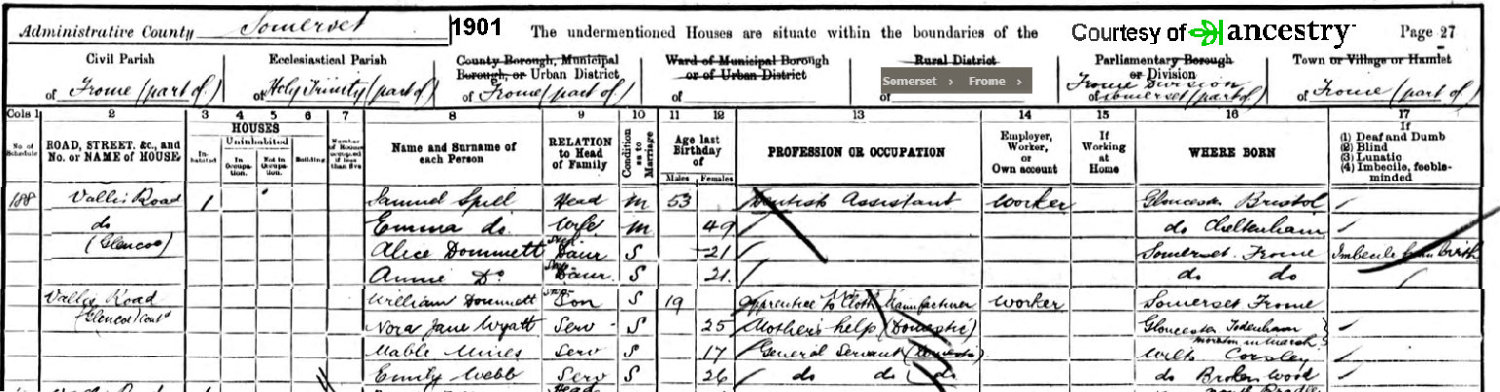 Administrative County Somerset 1901 The undermentioned Houses are situate within the boundaries of the Courtesy of ancestry Page 27
Civil Parish Ecclesiastical Parish County Borough, Municipal Borough, or Urban District Ward of Municipal Borough or of Urban District Rural District Parliamentary Borough or Division Town or Village or Hamlet
Somerset › Frome ›
of Frome (part of) of Holy Trinity (part of) of Frome (part of) of of Frome Division of Somerset (part of) of Frome (part of)
Cols 1 2 3 4 5 6 7 8 9 10 11 12 13 14 15 16 17
No. of Schedule ROAD, STREET, &c., and No. or NAME of HOUSE HOUSES Inhabited Uninhabited In Occupation. Not in Occupation. Building Number of Rooms occupied if less than five Name and Surname of each Person RELATION to Head of Family Condition as to Marriage Age last Birthday of Males Females PROFESSION OR OCCUPATION Employer, Worker, or Own account If Working at Home WHERE BORN If (1) Deaf and Dumb (2) Blind (3) Lunatic (4) Imbecile, feeble-minded
188 Vallis Road 1 Samuel Spill Head M 53 Dentist Assistant Worker Gloucester Bristol
do Emma do. Wife M 49 do Cheltenham
(Glencoe) Alice Dommett Step Daur S 21 Somerset Frome Imbecile from Birth
Annie Do Step Daur. S 21 do do
Vallis Road William Dommett Step Son S 19 Apprentice to Cloth Manufacturer Worker Somerset Frome
(Glencoe) Contd Nora Jane Wyatt Serv S 25 Mother's help (Domestic) Gloucester Todenham Moreton in Marsh
Mable Mines Serv S 17 General Servant (Domestic) Wilts Corsley
Emily Webb Serv S 26 do do do do Broken Wood
Head